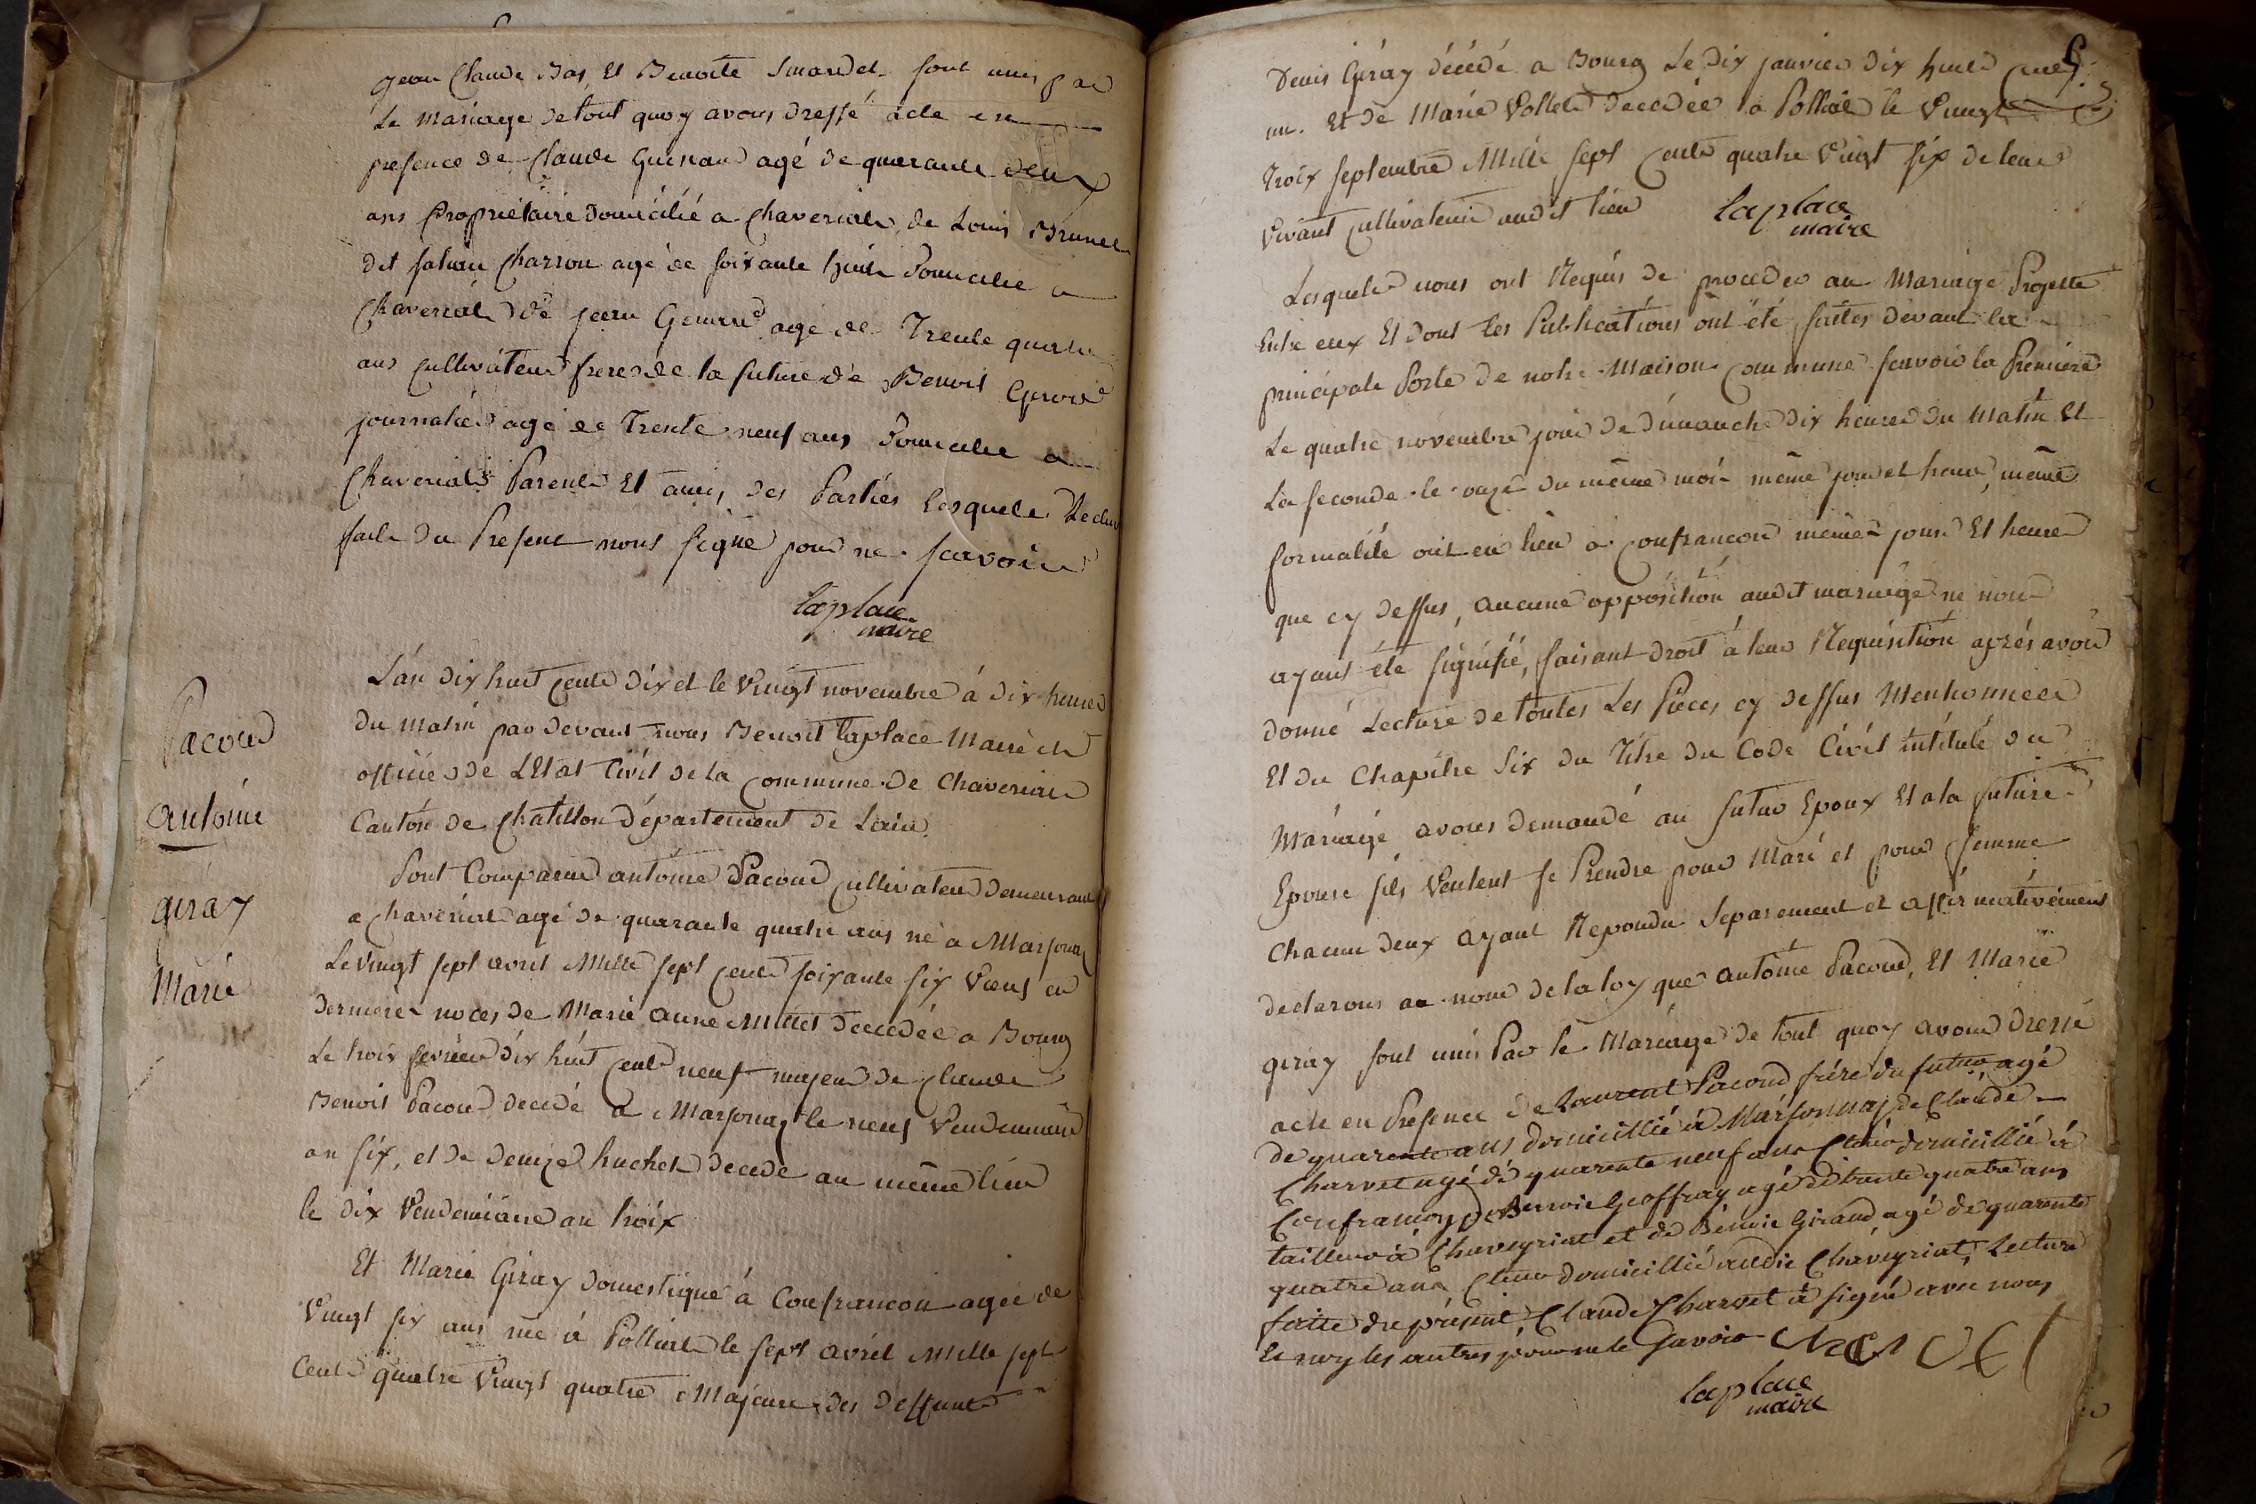 Jean Claude Bas Et Benoite Smardet sont unis par
Le mariage de tout quoy avons dressé acte en
presence de Claude Guenau agé de quarante deux
ans Propriétaire domicilié a Chaveriat, de Louis Brunet
dit Charron agé de soixante huit domicilie a
Chaveriat de jean agé de Trente quatre
ans cultivateur frere de la future de Benoit
journalier agé de Trente neuf ans domicilie a
Chaveriat Parents Et amis des Parties lesquels Lecture
faite du Présent nous signé pour ne scavoir
laplace
maire
L'an dix huit cent dix et le Vingt novembre à dix heures
du matin par devant nous Benoit laplace Maire et
officier de L'Etat Civil de la commune de Chaveriat
Canton de Chatillon département de Lain.
Pacoud
antoine
giray
Marie
Sont Comparus antoine Pacoud cultivateur demeurant
a Chaveriat agé de quarante quatre ans né a Marsonas
Le Vingt sept avril Mille sept cent soixante six Veuf en
derniere noces de Marie anne Millet decedée a Bourg
Le trois fevrier dix huit cent neuf majeur de Claude
Benoit Pacoud decedé a Marsonas le neuf Vendemiaire
an six, et de denize huchet decede au même lieu
le dix Vendemiaire an troix
Et Marie Giray domestique à Confrancon agée de
Vingt six ans née à Polliat le sept avril Mille sept
Cent quatre Vingt quatre Majeure des deffunts
Denis Giray décédé a Bourg Le dix janvier dix huit cent
un. Et de Marie Vollet decedée a Polliat le Vingt
Troix septembre Mille sept cent quatre Vingt six de leur
Vivant cultivateur audit lieu
laplace
maire
Lesquels nous ont Requis de proceder au Mariage Projetté
Entre eux Et dont les Publications ont été faites devant la
principale Porte de notre Maison Commune scavoir la Premiere
Le quatre novembre jour de dimanche dix heures du Matin Et
La seconde le onze du même mois même jour et heure, même
formalité ont eu lieu a Confrancon même jour Et heure
que cy dessus, aucune opposition audit mariage ne nous
ayant été signifié, faisant droit à leur Requisition aprés avoir
donné Lecture de toutes Les Pieces cy dessus Mentionnees
Et du Chapitre Six du Titre du Code Civil intitulé du
Mariage avons demandé au futur Epoux Et a la future
Epouse sils Veulent se Prendre pour Mari et pour femme
Chacun deux ayant Repondu Separement et affirmativement
declarons au nom de la loy que antoine Pacoud, Et Marie
giray sont unis Par le Mariage de tout quoy avons dressé
acte en Presence de Laurent Pacoud frére du futur agé
de quarente ans domicillié à Marsonnaj de Claude
Charvet agé de quarente neuf ans domicillié à
Confrancon de Benoit Geoffray agé de trente quatre ans
tailleur à Chaveyriat et de Benoit Giraud agé de quarente
quatre ans domicillié audit Chaveyriat, Lecture
faitte du présent Claude Charvet à signé avec nous
Et non les autres pour ne le Savoir
laplace
maire